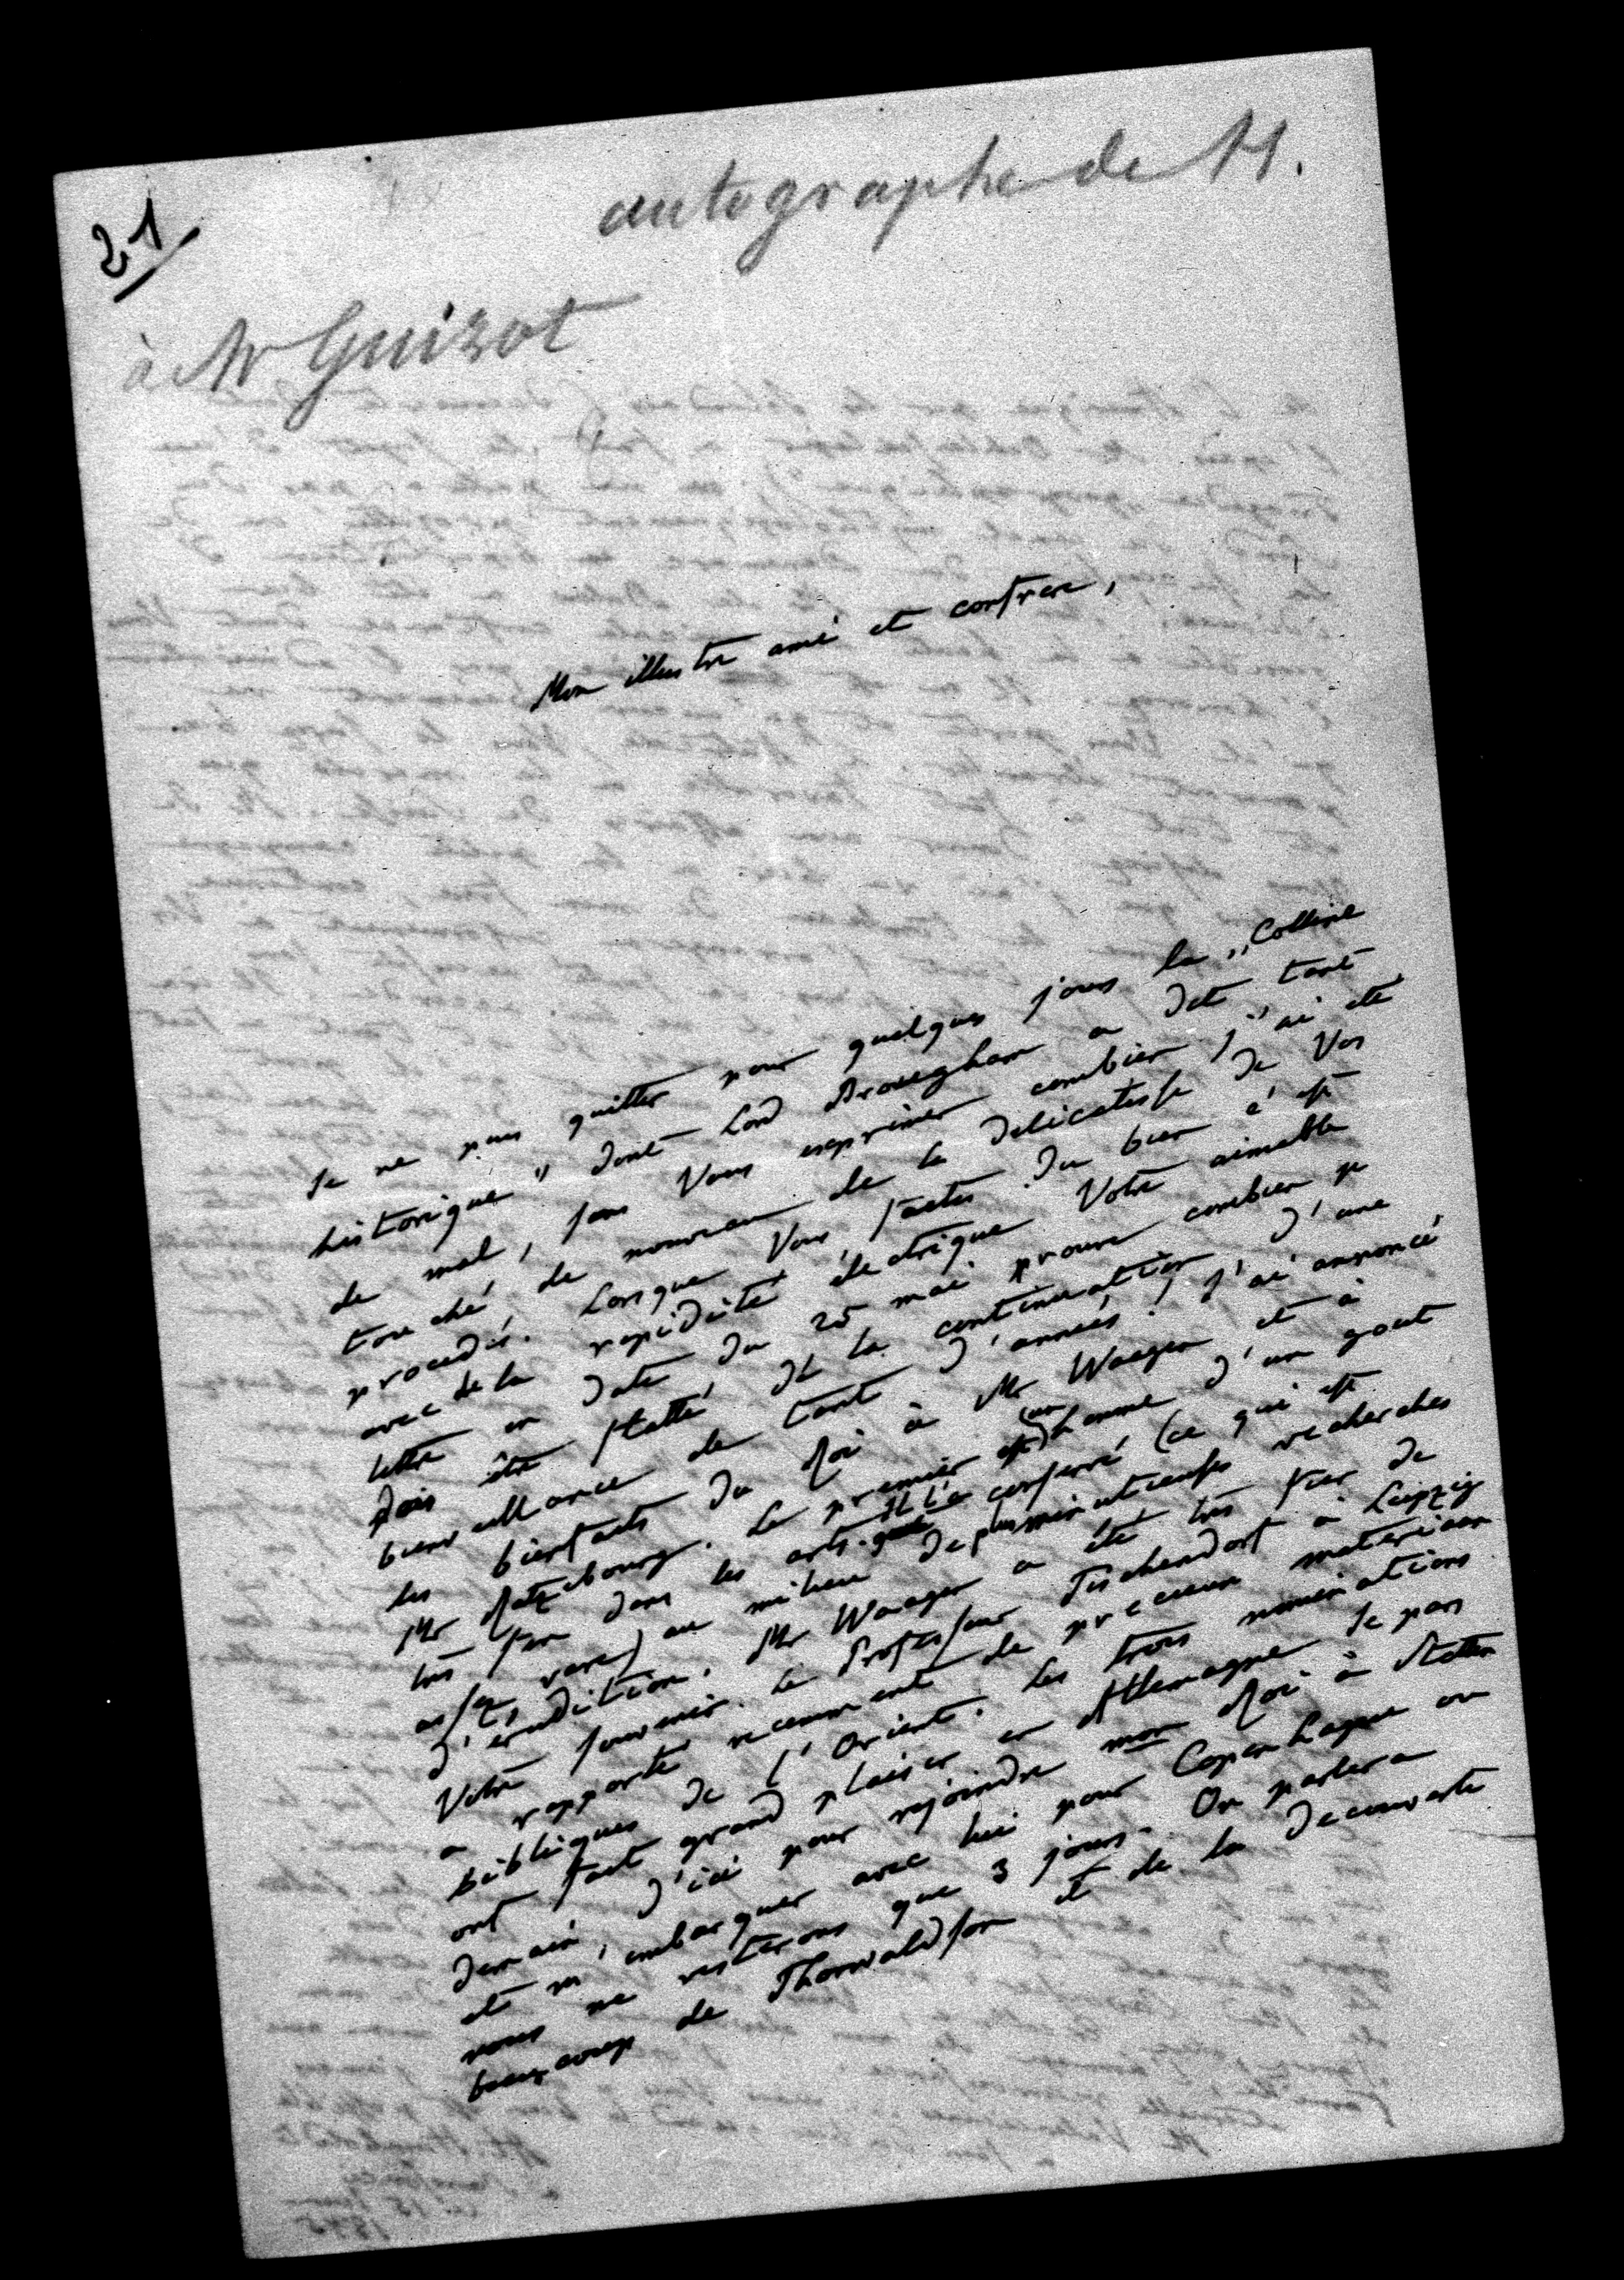 autographe de H.
21
à Mr Guizot
Mon illustre ami et confrere,
Je ne puis quitter pour quelques jours la „Colline
historique" dont Lord Brougham a dit tant
de mal, sans Vous exprimer combien j'ai été
touché de nouveau de la delicatesse de Vos
procedés. Lorsque Vous faites du bien c'est
avec de la rapidité électrique. Votre aimable
lettre en date du 25 mai prouve combien je
dois être flatté de la continuation d'une
bienveillance de tant d'années! J'ai annoncé
les bienfaits du Roi à Mr Waagen et à
Mr Ratzebourg. Le premier est (un) homme d'un gout
très fin dans les arts. Il l'a conservé (ce qui est
assez rare) au milieu de plus minutieuses recherches
d'erudition. Mr Waagen a été très fier de
Votre souvenir. Le Professeur Tischendorf à Leipzig
a rapporté recemment de precieux materiaux
bibliques de l'Orient. Les trois nominations
ont fait grand plaisir en Allemagne. Je pars
demain d'ici pour rejoindre mon Roi à Stettin
et m'embarquer avec lui pour Copenhague ou
nous ne resterons que 3 jours. On parlera
beaucoup de Thorwaldson et de la decouverte